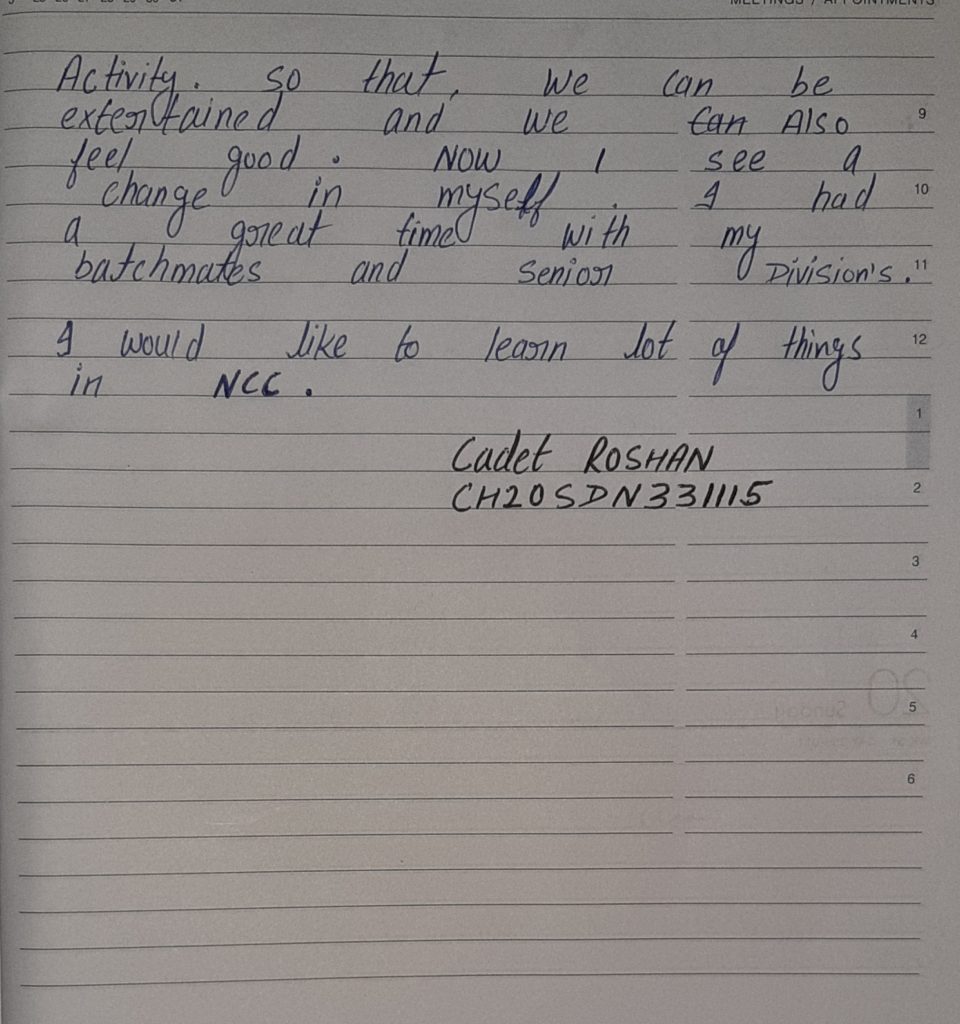 MEETINGS / APPOINTMENTS
Activity. so that, we can be
extertained and we can Also 9
feel good. NOW I see a
change in myself. I had 10
a great time with my
batchmates and Senior Division's. 11
I would like to learn lot of things 12
in NCC.
1
Cadet ROSHAN
CH20SDN331115 2
3
4
5
6